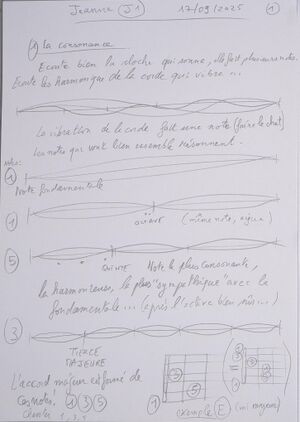 Jeanne J1 17/09/2025 1
1) La consonance
Ecoute bien la cloche qui sonne, elle fait plusieurs notes.
Ecoute les harmoniques de la corde qui vibre ...
La vibration de la corde fait une note (faire le chat)
Les notes qui vont bien ensemble résonnent.
notes:
1
Note fondamentale
1 OCTAVE (même note, aigue)
5 QUINTE Note la plus consonante,
la + harmonieuse, la plus "sympathique" avec la
fondamentale ... (après l'octave bien sûr ...)
3
TIERCE
MAJEURE
L'accord majeur est formé de
ces notes! 1 3 5
chanter 1, 3, 5
1 exemple E (mi majeur)